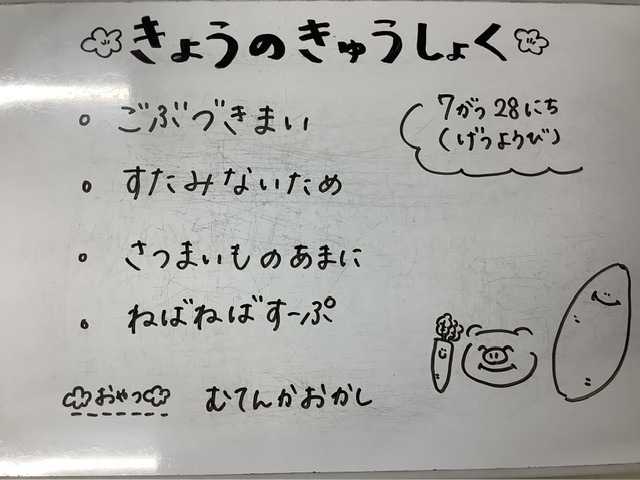 きょうのきゅうしょく
7がつ28にち
(げつようび)
。ごぶづきまい
。すたみないため
。さつまいものあまに
。ねばねばすーぷ
おやつ むてんかおかし